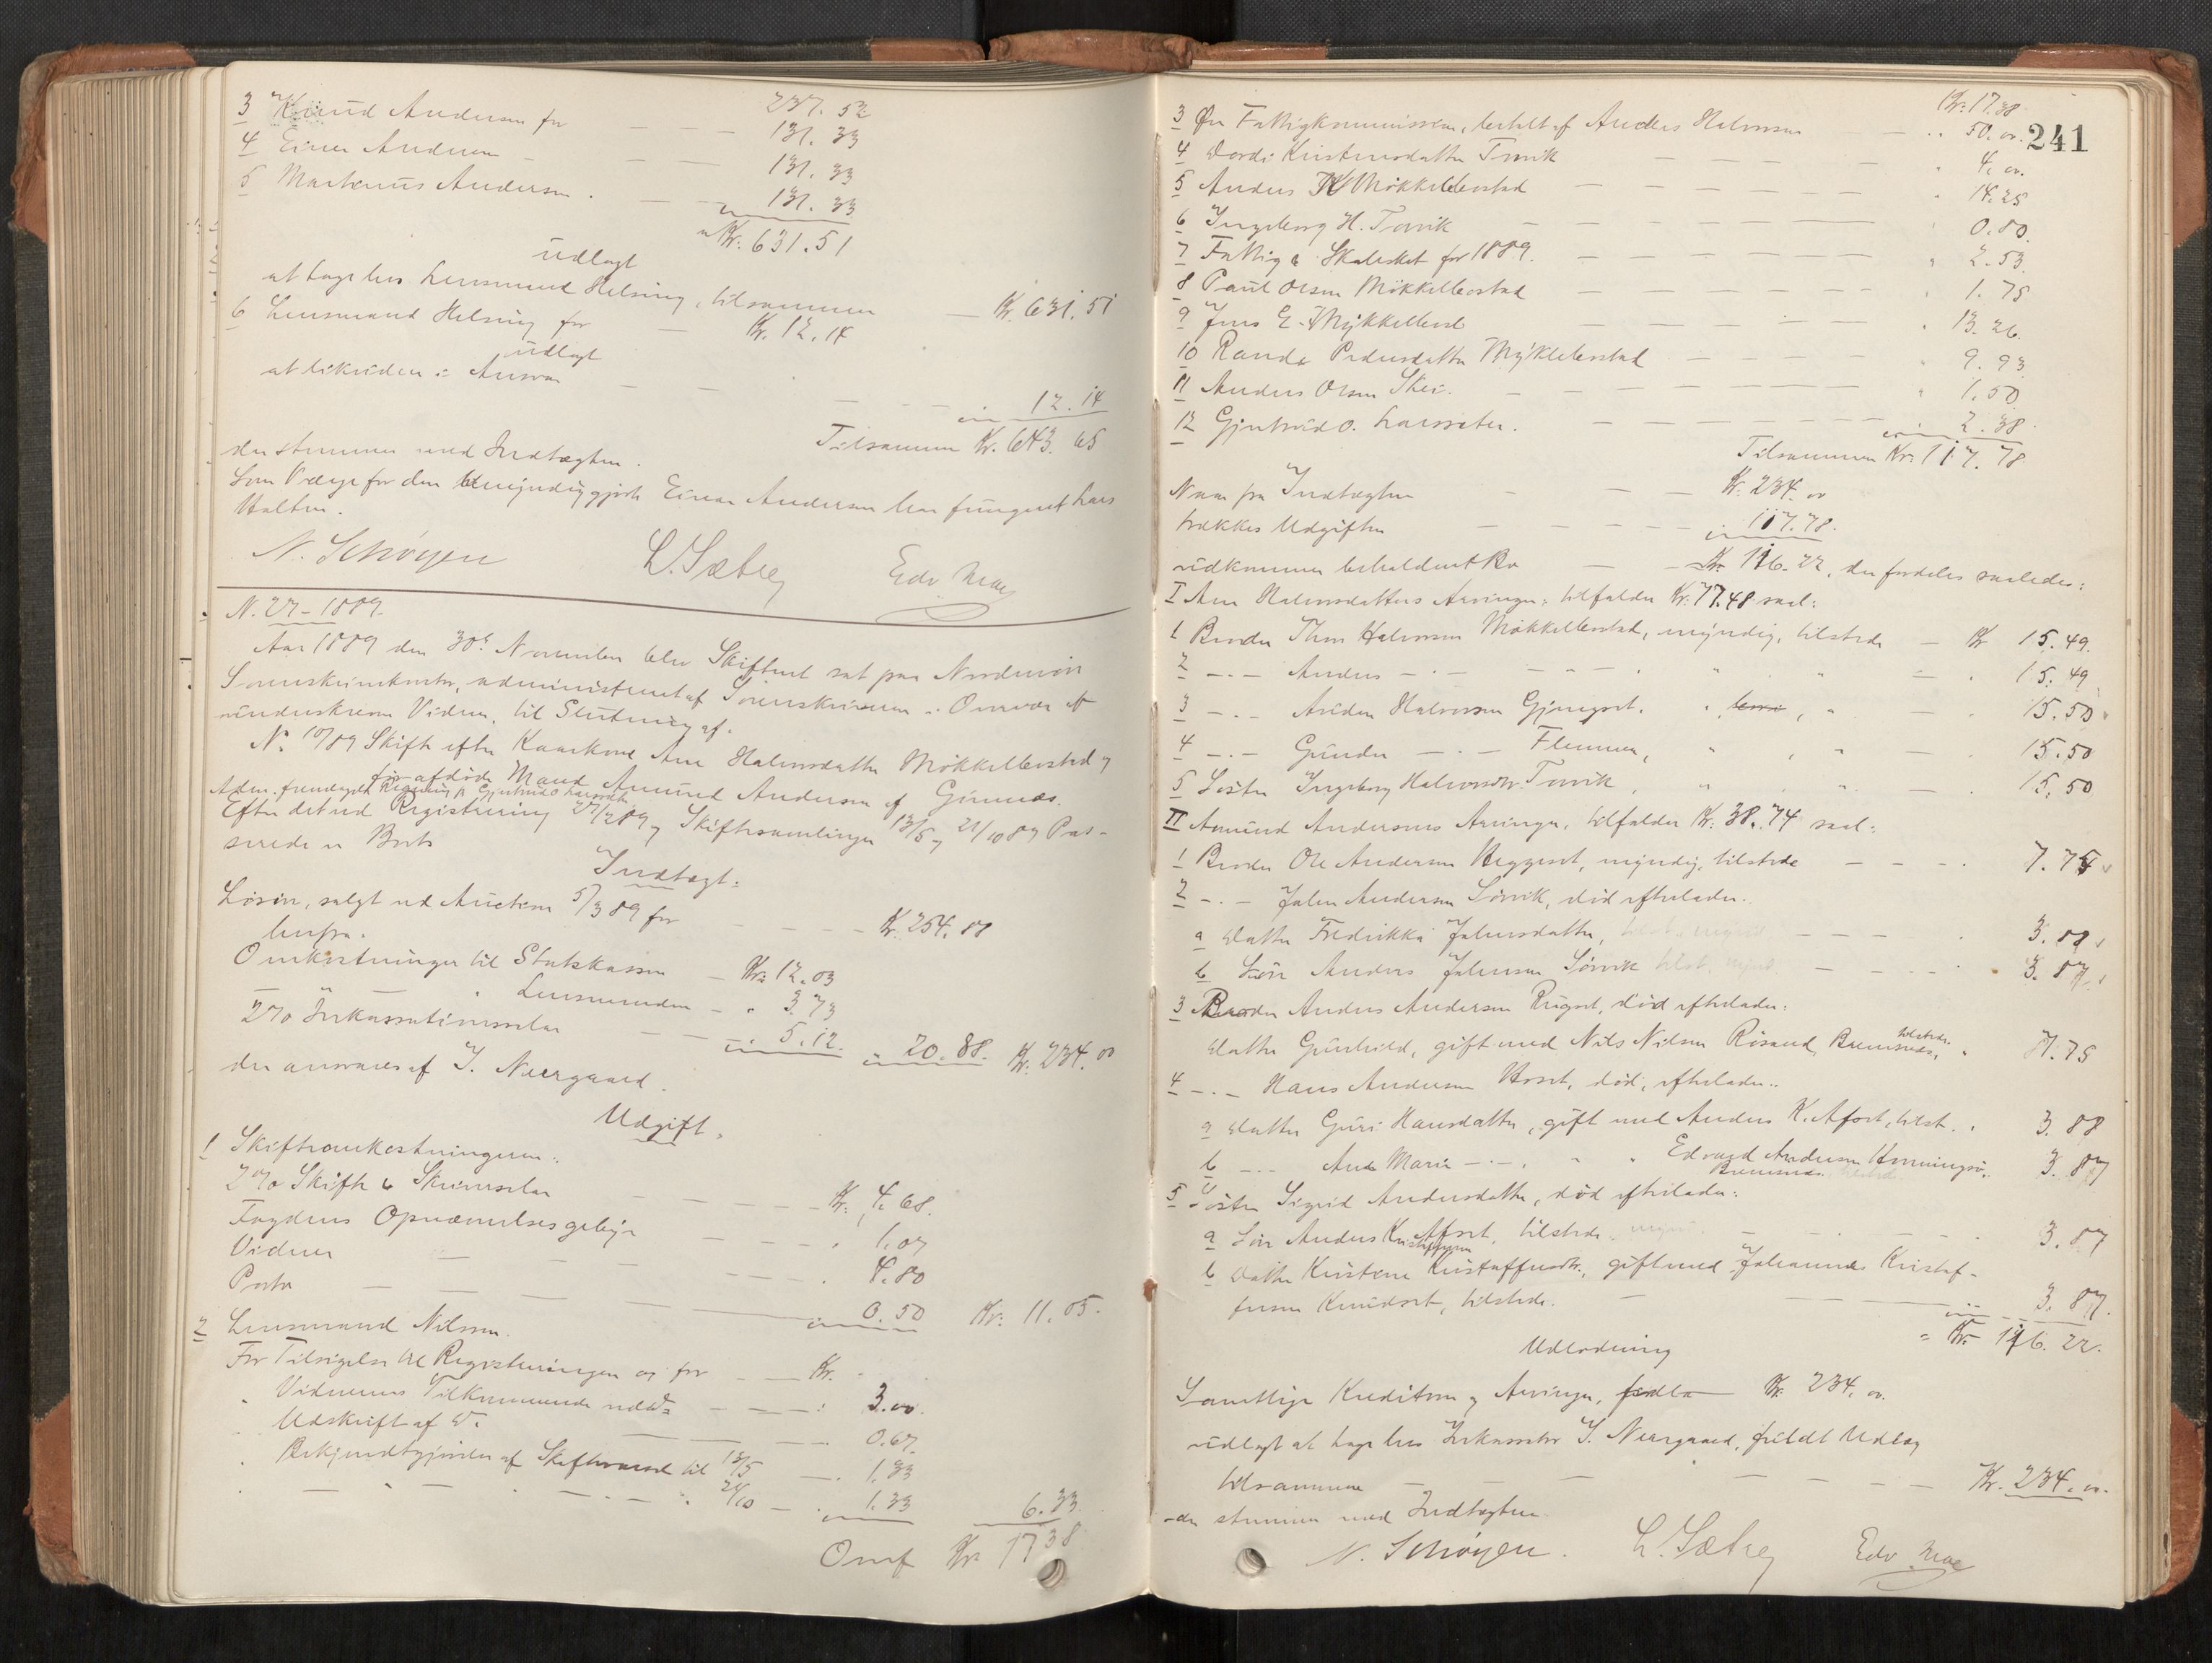 3 Knud Andersen for — — — 237.52
4 Einar Andersen — — — 131.33
5 Martinus Andersen. — — 131.33
131.33
Kr. 631.51
udlagt
at tage hos Lensmand Helsing, tilsammen — Kr. 631.51
6 Lensmand Helsing for — Kr. 12.14
udlagt
at likvidere i Ansvar — — — — — 12.14
Tilsammen Kr. 643.65
der stemmer med Indtægten.
Som Værge for den umyndiggjorte Einar Andersen har fungeret Lars
Halten.
N. Schøyen L. Sæbreg Edv. Moe
N. 27 – 1889.
Aar 1889 den 30te November blev Skifteret sat paa Nordmør
Sorenskriverkontor, administreret af Sorenskriveren i Overvær af
underskrevne Vidner, til Slutning af.
No 10/89 Skifte efter Kaarkone Ane Halvorsdatter Mökkelbostad og
før afdöde Mand Amund Andersen af Gimnæs.
Adm. fremlagde Regning fr Gjertrud O Larssæter
Efter det ved Registrering 27/2 89 og Skiftesamlinger 13/5 og 21/10 89 Pas-
serede er Boets
Indtægt:
Løsøre, solgt ved Auction 5/3 89 for — — — — Kr. 254.88
herfra.
Omkostninger til Statskassen — Kr. 12.03
— " Lensmanden — " 3.73
2% Inkassationssalær — — 5.12. 20.88. Kr. 234.00
der ansvares af I. Neergaard.
Udgift.
1 Skifteomkostningerne:
2% Skifte & Skriversalær — — — Kr. 4.68.
Fogdens Opnævnelsesgebyr — — — " 1.07
Vidner — — — — . 4.80
Porto — — — 0.50 Kr. 11.05.
2 Lensmand Nilsen.
For Tilsigelse til Registreringen og for — — Kr.
" Vidnernes Tilkommende ved Do — — : 3.00.
" Udskrift af Do — — . 0.67.
" Bekjendtgjörelse af Skiftesaml til 13/5 — . 1.33
" — " — " — . — " 21/10 — . 1.33 6.33.
Omf Kr. 17.38
241
Kr. 17.38
3 Øre Fattigkommission, betalt af Anders Halvorsen — .. 50.00.
4 Dordi Kristensdatter Torvik — — — — " 4.00.
5 Anders K Mökkelbostad — — — — " 14.25
6 Ingeborg H. Torvik — — — — 0.80.
7 Fattig & Skoleskat for 1889. — — — — " 2.53
8 Paul Olsen Mökkelbostad — — — — " 1.75
9 Jens E. Mykkelbost — — — — " 13.26.
10 Randi Pedersdatter Mÿklebostad — — — — " 9.93
11 Anders Olsen Skei. — — — — " 1.50
12 Gjertrud O. Larssæter. — — — — 2.38.
Tilsammen Kr. 117.78
Naar fra Indtægten — — — Kr. 234.00
trækkes Udgiften — — — — 117.78.
udkommer beholdent Bo — — Kr. 116.22, der fordeles saaledes:
I Ane Halvorsdatters Arvinger: tilfalder Kr. 77.48 saal:
1 Broder Thore Halvorsen Mökkelbostad, myndig, tilstede — Kr 15.49.
2 —.— Anders —.— — " — . " " — . 15.49
3 —.— Auden Halvorsen Gjengset. " , " — 15.50
4 —.— Gunder —.— Flemmen, " , " — . 15.50
5 Söster Ingeborg Halvorsdtr. Torvik, " " — . 15.50
II Amund Andersens Arvinger, tilfalder Kr. 38.74 saal:
1 Broder Ole Andersen Heggeset, myndig, tilstede — — — . 7.75
2 —.— Johan Andersen Sörvik, död efterlader.
a Datter Fredrikka Johansdatter, — — — . 3.88
b Sön Anders Johansen Sörvik tilst. mynd. — — . 3.87
3 Broder Anders Andersen Rugset, död efterlader:
Datter Gunhild, gift med Nils Nilsen Rösand, Bremsnes, tilstede. " 7.75
4 —.— Hans Andersen Horset, död, efterlader:
a Datter Guri Hansdatter, gift med Anders K. Afset, tilst. . 3.88
b —.— Ane Maria —.—. " " Edvard Andersen Henningsö, Bremsnes. 3.87
5 Söster Sigrid Andersdatter, död efterlader:
a Sön Anders Kristoffersen Afset, tilstede. — — . 3.87
b Datter Kirstine Kristoffersdtr., gift med Johannes Kristof-
fersen Knudset, tilstede. — — — 3.87.
= Kr. 116.22.
Udlodning
Samtlige Kreditorer og Arvinger, for Kr. 234.00.
udlagt at tage hos Inkassator I. Neergaard, fuldt Udlæg
tilsammen — — — — Kr. 234.00.
der stemmer med Indtægten.
N. Schøyen. L. Sæbreg Edv. Moe